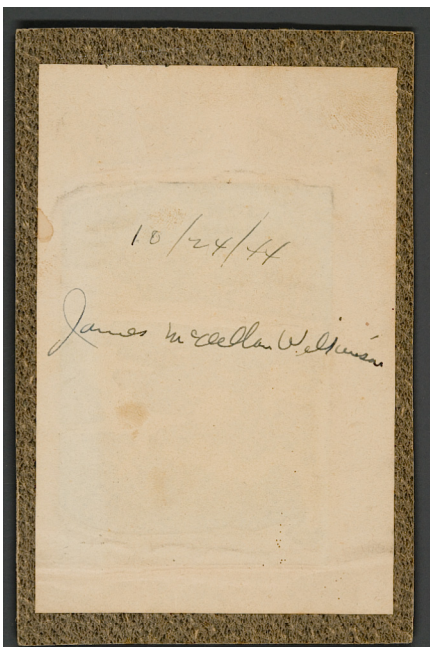 10/24/44
James McClellan Wilkinson